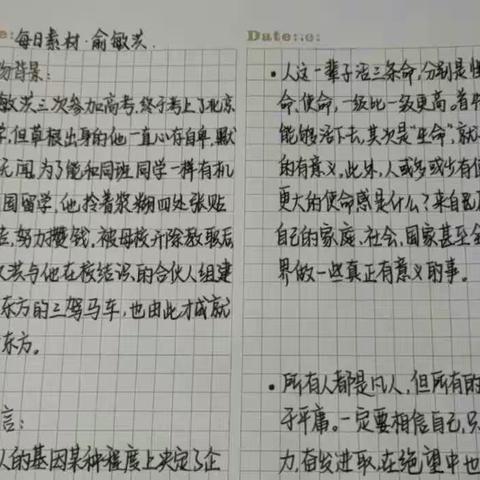 每日素材·俞敏洪.
物背景:
敏洪三次参加高考,终于考上了北京
学,但草根出身的他一直心存自卑,默
无闻,为了能和同班同学一样有机
国留学,他拎着浆糊四处张贴
告,努力攒钱,被母校开除教职后
敏洪与他在校结识的合伙人组建
东方的三驾马车,也由此才成就
东方。
言:
人的基因某种程度上决定了企
Date:
·人这一辈子活三条命,分别是性
命、使命,一级比一级更高。首
能够活下去,其次是"生命",就
的有意义。此外,人或多或少有
更大的使命感是什么?来自
自己的家庭、社会、国家甚至全
界做一些真正有意义的事。
·所有人都是凡人,但所有的
于平庸。一定要相信自己,只
力,奋发进取,在绝望中也